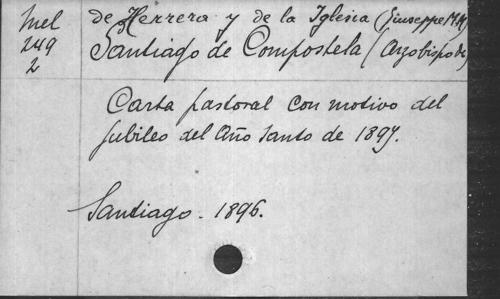 Mel de Herrera y de la Iglesia (Giuseppe M.M)
249 Santiago de Compostela (Arzobispo de)
2
Carta pastoral con motivo del
jubileo del Año Santo de 1897.
Santiago - 1896.